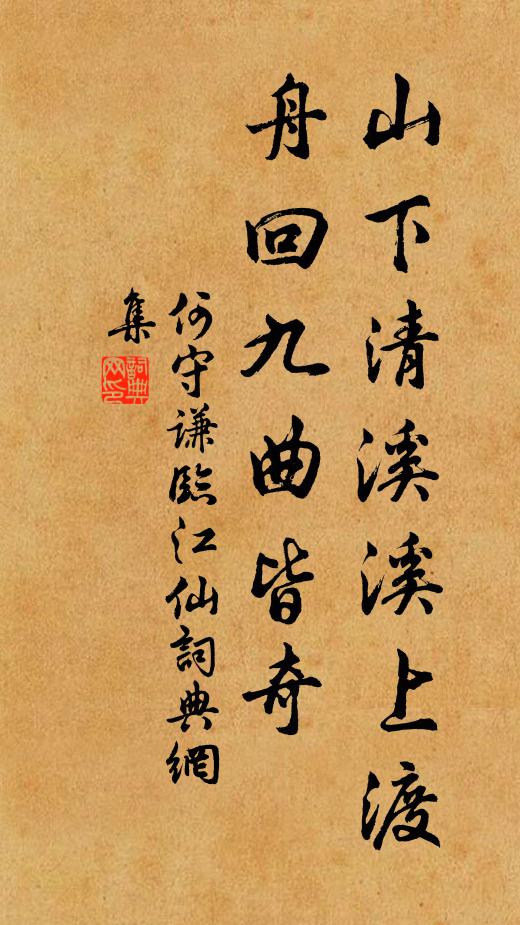 山下清溪溪上渡
舟回九曲皆奇
何守謙臨江仙詞典網
集
詞典网印